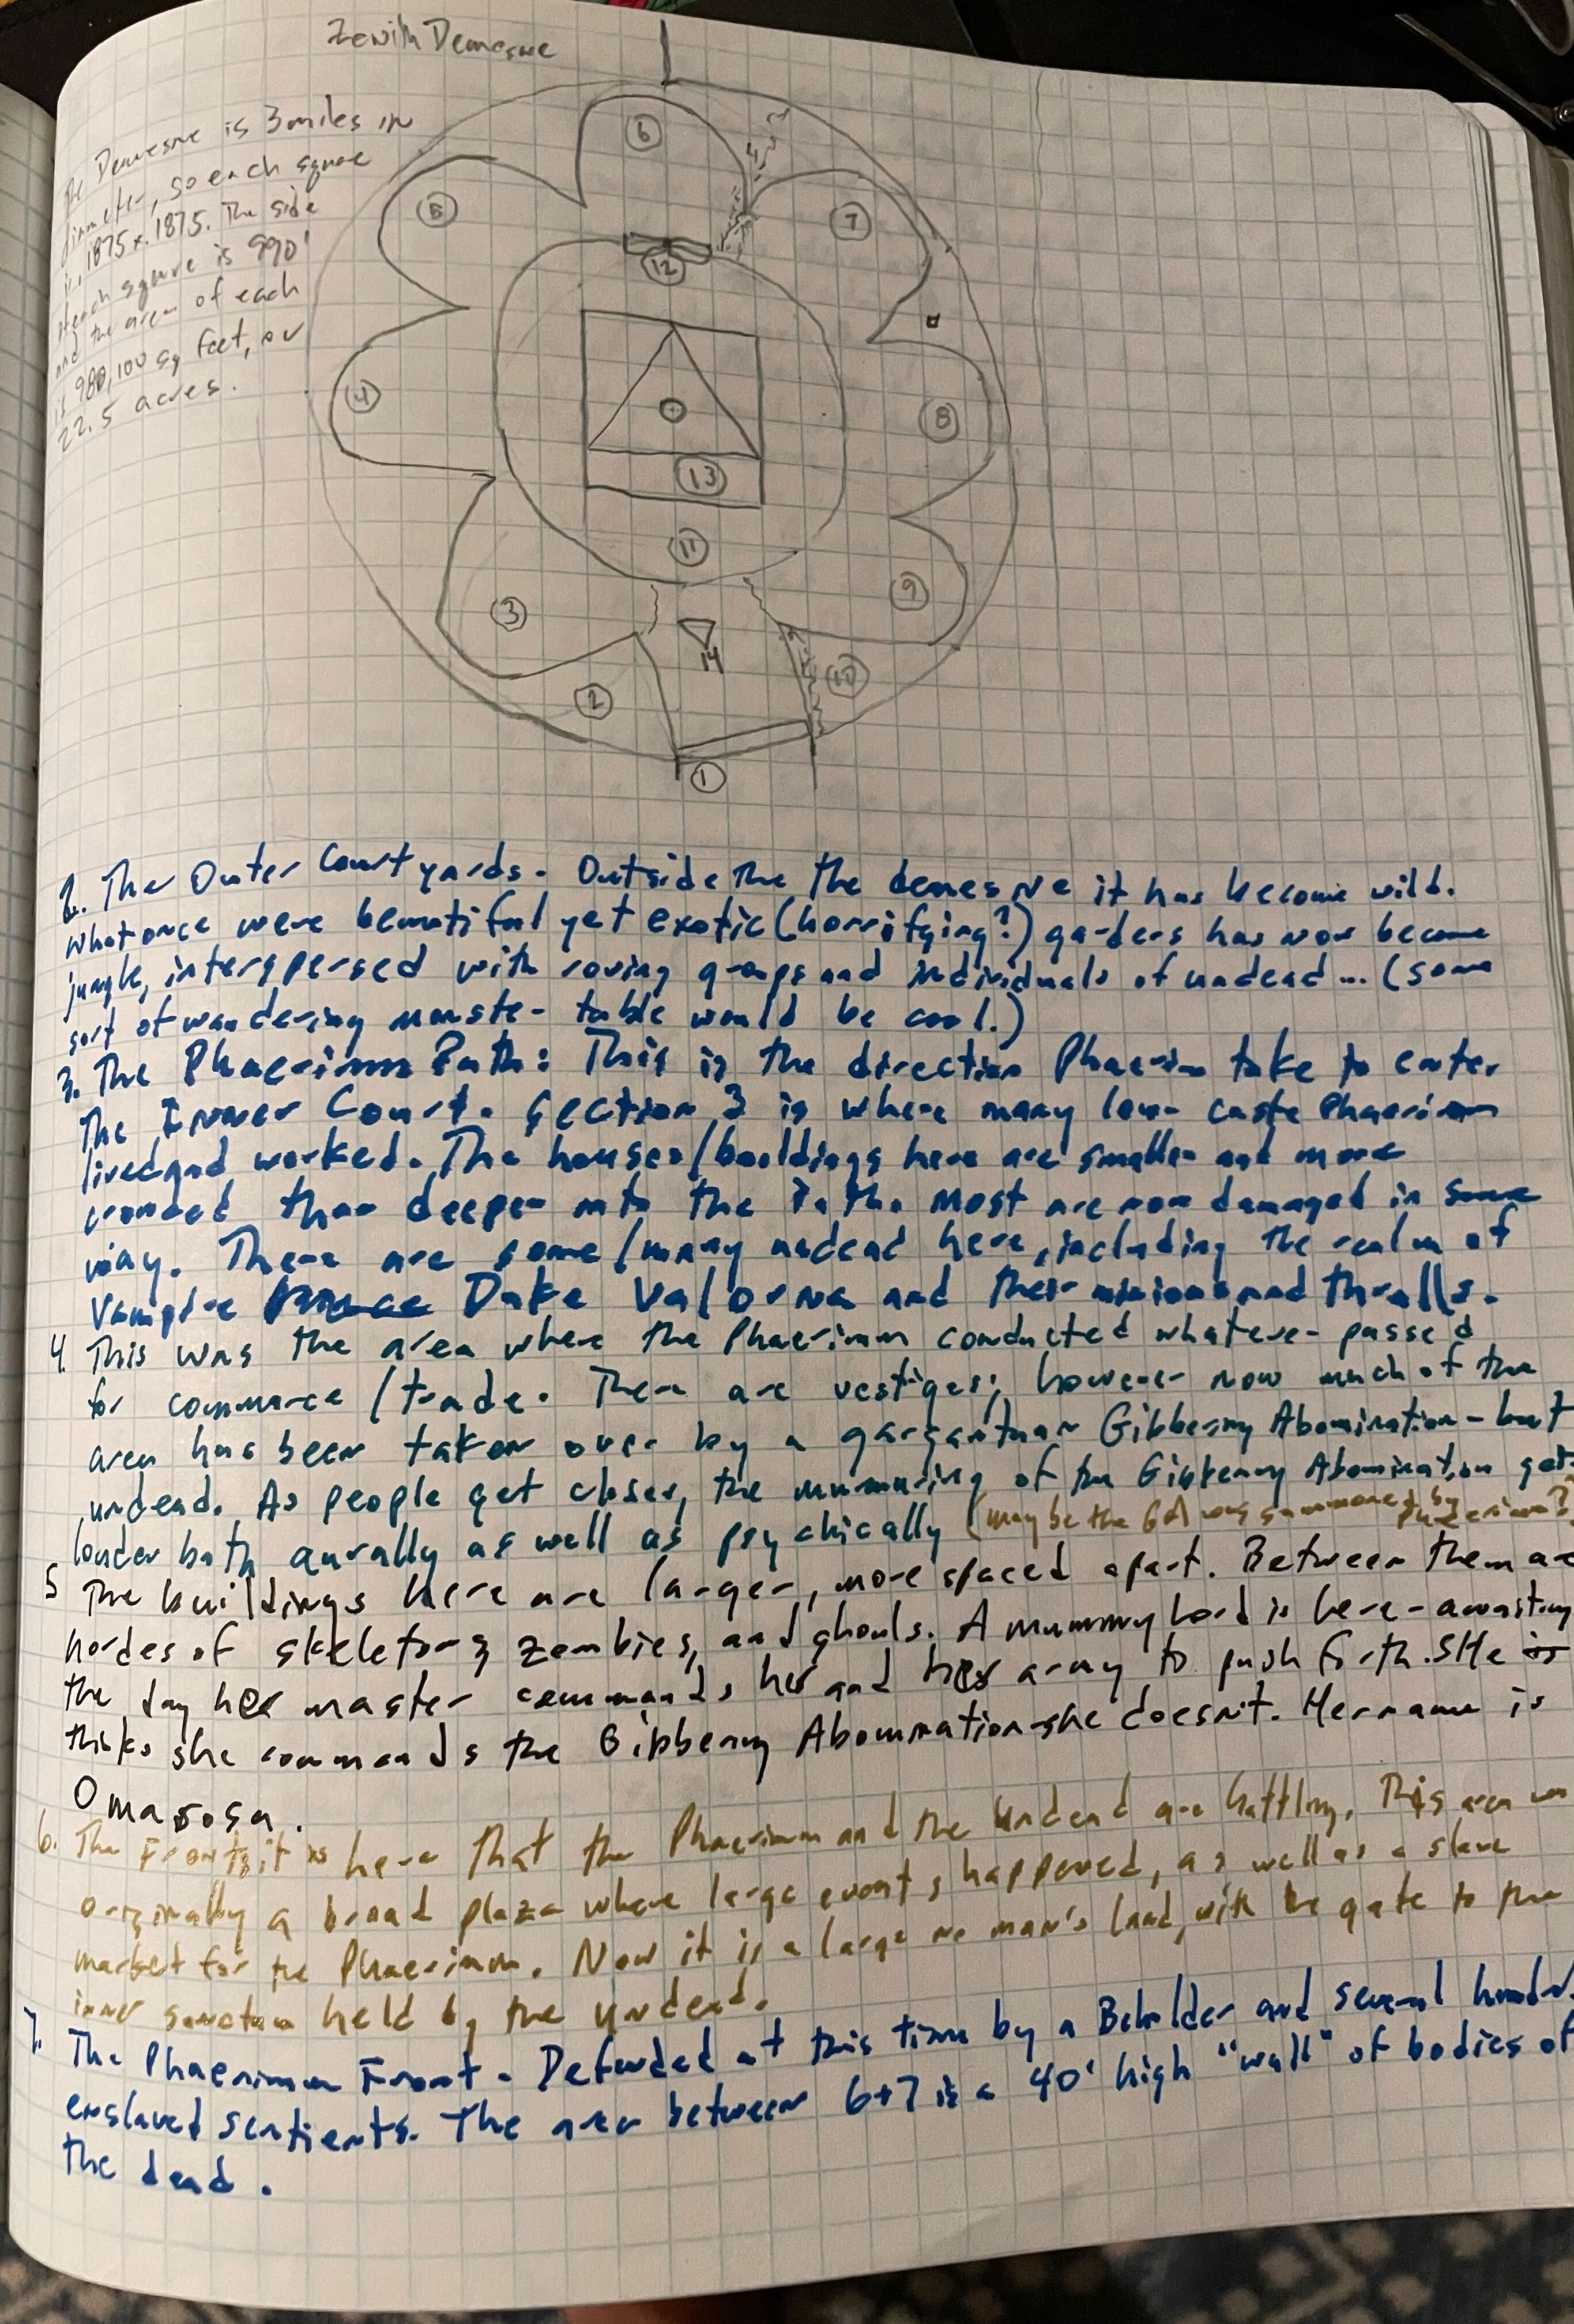 Zenith Demesne
The Demesne is 3 miles in
diameter, so each square
is .1875 x .1875. The side
of each square is 990'
and the area of each
is 980,100 sq feet, or
22.5 acres.
6
5
7
12
4
8
13
11
3
9
14
2
10
1
2. The Outer Courtyards. Outside the the demesne it has become wild.
What once were beautiful yet exotic (horrifying?) gardens has now become
jungle, interspersed with roving groups and individuals of undead... (some
sort of wandering monster table would be cool.)
3. The Phaerimm Path: This is the direction Phaerim take to enter
The Inner Court. Section 3 is where many low caste Phaerimm
lived and worked. The houses/buildings here are smaller and more
crowded than deeper into the Path. Most are now damaged in some
way. There are some/many undead here, including the realm of
Vampire Duke Valorna and their minions and thralls.
4. This was the area where the Phaerimm conducted whatever passed
for commerce/trade. There are vestiges; however now much of the
area has been taken over by a gargantuan Gibbering Abomination - but
undead. As people get closer, the murmuring of the Gibbering Abomination gets
louder both aurally as well as psychically (maybe the GA was summoned by Phaerimm?)
5 The buildings here are larger, more spaced apart. Between them are
hordes of skeletons, zombies, and ghouls. A mummy Lord is here - awaiting
the day her master commands her and her army to push forth. SHe is
thinks she commands the Gibbering Abomination - she doesn't. Her name is
Omarosa.
6. The Front; it is here that the Phaerimm and the Undead are battling. This area was
originally a broad plaza where large events happened, as well as a slave
market for the Phaerimm. Now it is a large no man's land, with the gate to the
inner sanctum held by the undead.
7. The Phaerimm Front - Defended at this time by a Beholder and several
enslaved sentients. The area between 6+7 is a 40' high "wall" of bodies of
the dead.